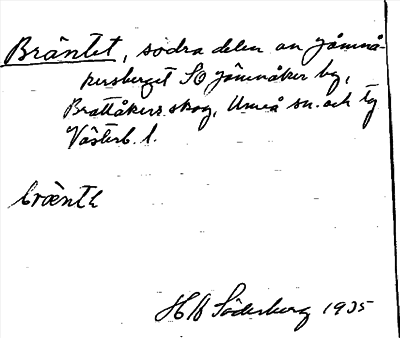 Bräntet, södra delen av Jämnå-
kersberget SO Jämnåker by,
Brattåkers skog, Umeå sn. och tg
Västerb. l.
bræntɩ
HB Söderberg 1935